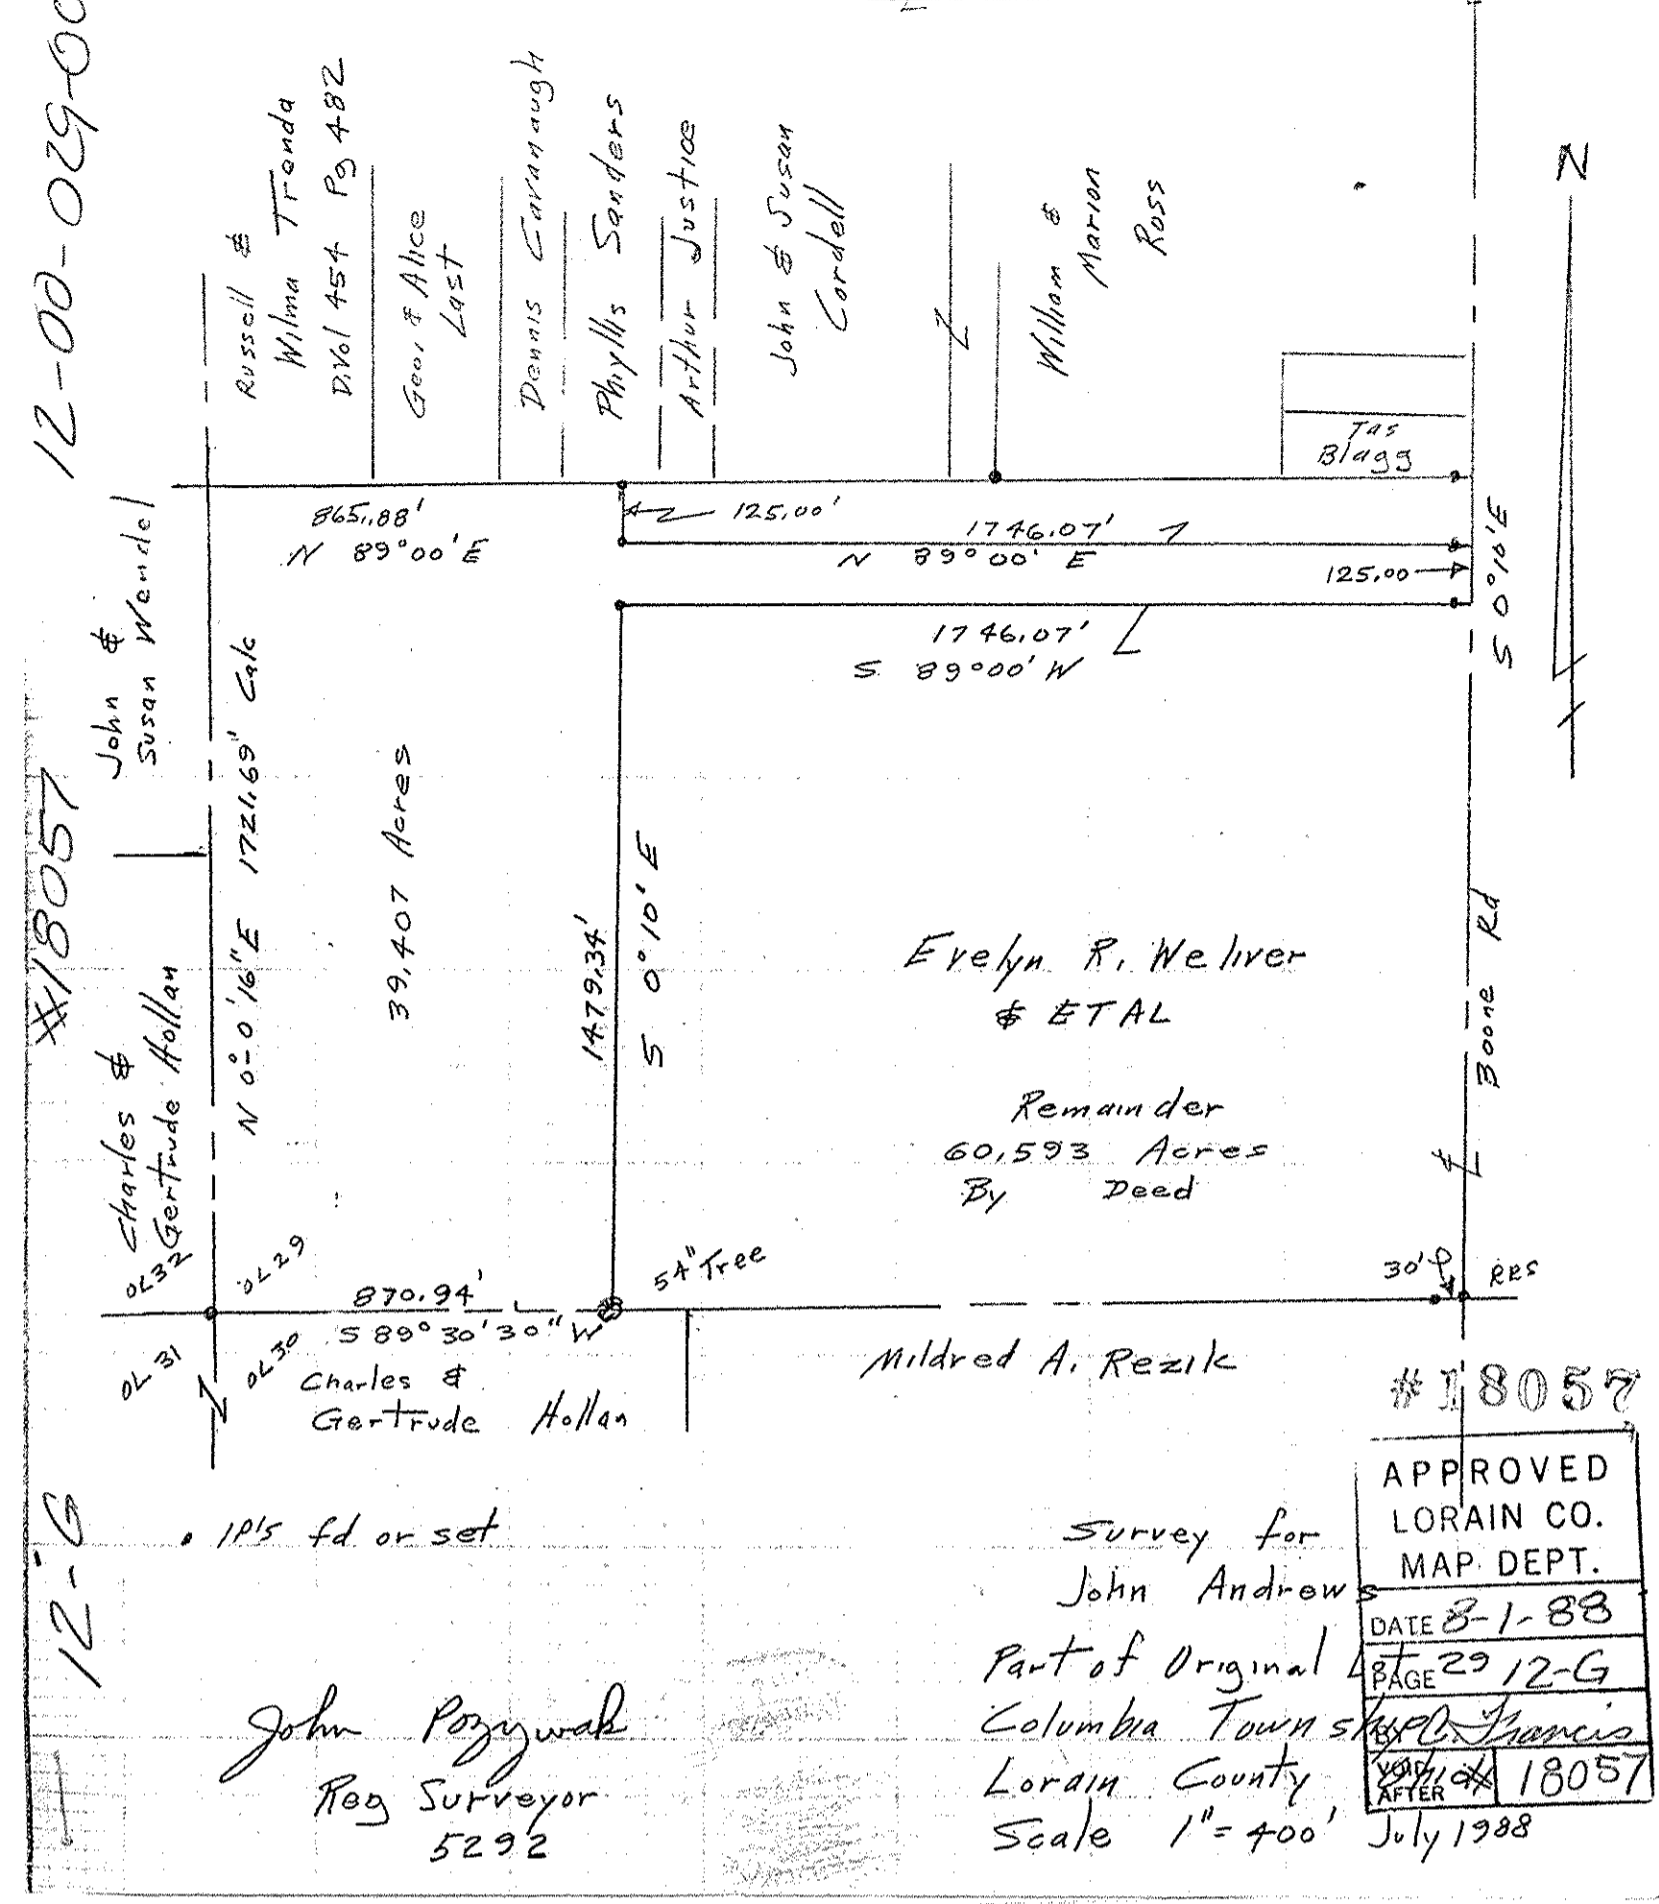 12-00-029-00
Russell &
Wilma Trenda
D.Vol 454 Pg 482
Geo. & Alice
Last
Dennis Cavanaugh
Phyllis Sanders
Arthur Justice
John & Susan
Cordell
William &
Marion
Ross
N
Jas
Blagg
865.88'
N 89°00'E
125.00'
1746.07'
N 89°00' E
125.00
S 0°10'E
1746.07'
S 89°00' W
John &
Susan Wendel
N 0°-0'16"E 1721.69' Calc
39.407 Acres
1479.34'
S 0°10' E
#18057
Charles &
Gertrude Hollan
Evelyn R. Weliver
& ETAL
Remainder
60.593 Acres
By Deed
Boone Rd
OL32
OL29
870.94'
S 89°30'30" W
54" Tree
30'
RRS
OL 31
OL30
Charles &
Gertrude Hollan
Mildred A. Rezik
#18057
APPROVED
LORAIN CO.
MAP DEPT.
DATE 8-1-88
PAGE 12-G
BY C. Francis
VOID
AFTER
18057
12-G
• IP's fd or set
Survey for
John Andrews
Part of Original 29
Columbia Township
Lorain County
Scale 1"=400' July 1988
John Pozywak
Reg Surveyor
5292